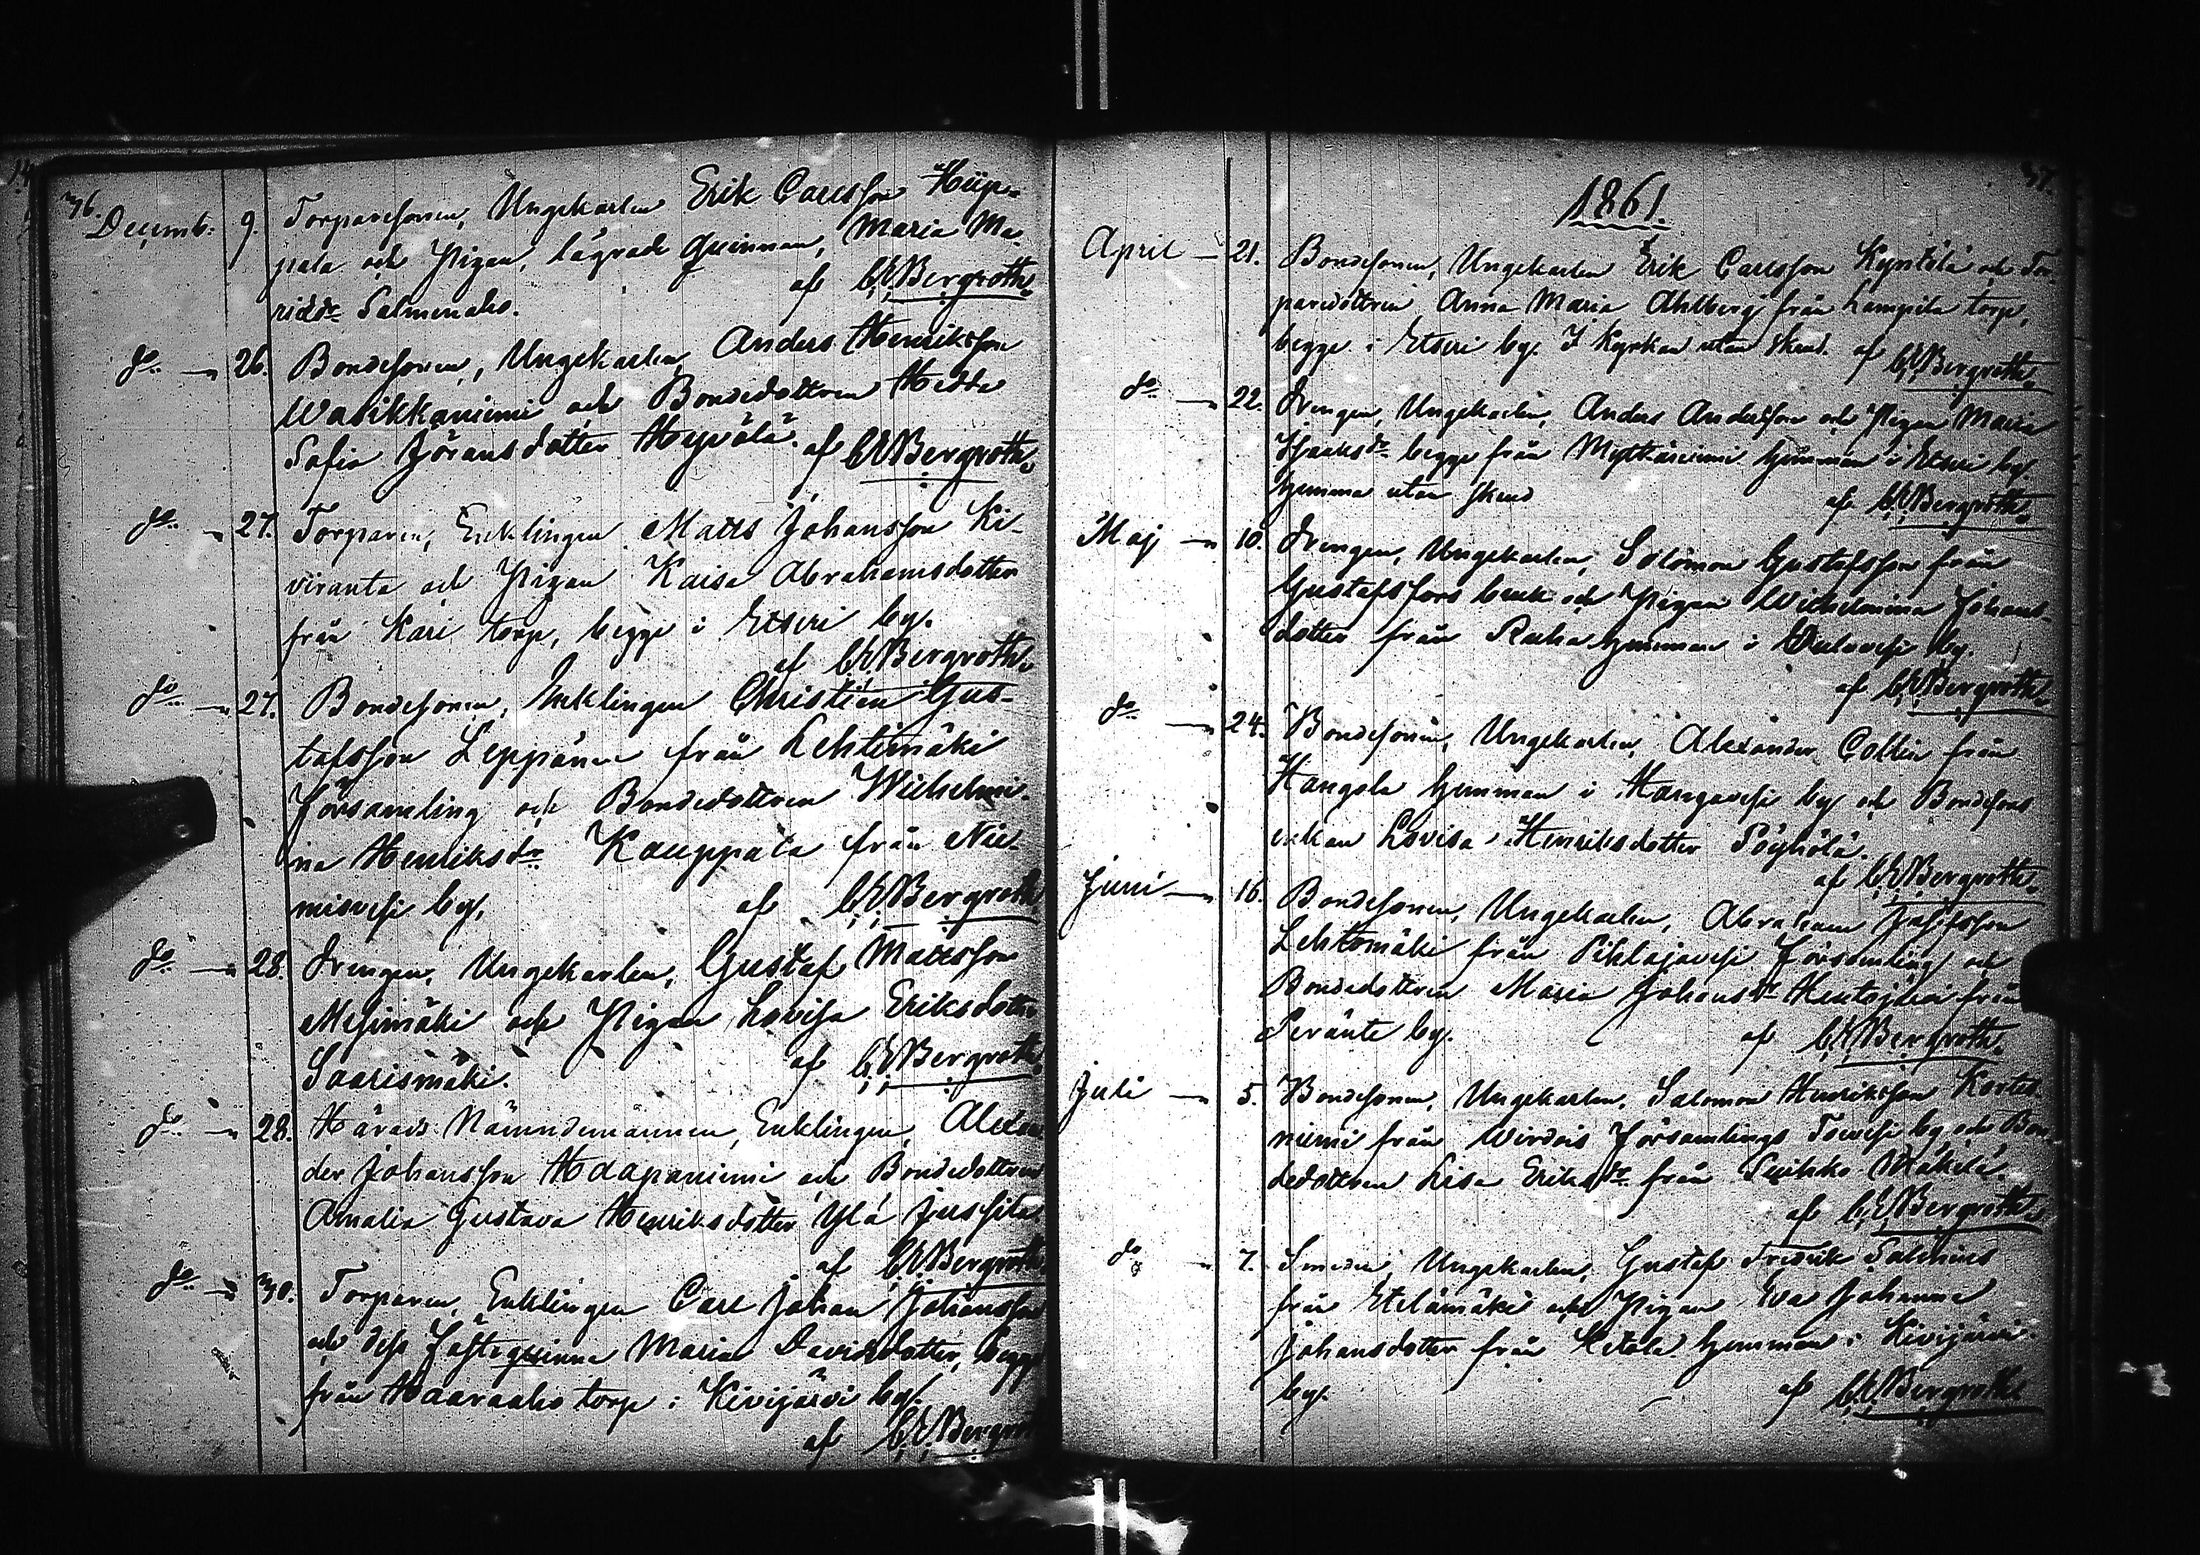 36.
Decemb: 9. Torparesonen, Ungekarlen Erik Carlsson Hiip-
pala och Pigan, lägrade Quinnan, Maria Ma-
Salmenaho. af C. E. Bergroth.
do 26. Bondesonen, Ungekarlen, Anders Henriksson
Wasikkaniemi och Bondedottren Hedda
Sofia Jöransdotter Hyvölä. af C. E. Bergroth.
do 27. Torparen, Enklingen Matts Johansson Ki-
viranta och Pigan Kaisa Abrahamsdotter
från Kari torp, begge i Etseri by.
af C. E. Bergroth.
do 27. Bondesonen, Enklingen Christian Gus-
tafsson Leppänen från Lehtimäki
Församling och Bondedottren Wilhelmi-
na Henriksdr Kauppala från Nie-
misvesi by. af C. E. Bergroth
do 28. Drengen, Ungekarlen, Gustaf Mattsson
Mesimäki och Pigan Lovisa Eriksdotter
Saarismäki. af C. E. Bergroth
do 28. Härads Nämndemannen, Enklingen, Alexan
der Johansson Haapaniemi och Bondedottren
Amalia Gustava Henriksdotter Ylä Jussila
af C. E. Bergroth.
do 30. Torparen, Enklingen Carl Johan Johansson
och dess Fästeqvinna Maria Davidsdotter, begge
från Haaraaho torp i Kivijärvi by.
af C. E. Bergroth
37.
1861.
April 21. Bondesonen, Ungekarlen Erik Carlsson Kyntölä och Tor-
paredottren Anna Maria Ahlberg från Lampila torp,
begge i Etseri by. I Kyrkan utan skrud. af C. E. Bergroth.
do 22. Drengen, Ungekarlen, Anders Andersson och Pigan Maria
Isaksdr begge från Myllärniemi hemman i Etseri by.
hemma utan skrud af C. E. Bergroth.
Maj 10. Drengen, Ungekarlen, Salomon Gustafsson från
Gustafsfors bruk och Pigan Wilhelmina Johans-
dotter från Raha hemman i by.
af C. E. Bergroth.
do 24. Bondesonen, Ungekarlen, Alexander Collin från
Hangola hemman i Hangavesi by och Bondesons
enkan Lovisa Henriksdotter Pöyhölä.
af C. E. Bergroth.
Juni 16. Bondesonen, Ungekarlen, Abraham
Lehtomäki från Pihlajavesi Församling och
Bondedottren Maria Johansdr från
Peränte by. af C. E. Bergroth.
Juli 5. Bondesonen, Ungekarlen, Salomon Henriksson Kortes-
niemi från Wirdois Församlings by och Bon-
dedottren Lisa Eriksdr från Mäkelä.
af C. E. Bergroth.
do 7. Smeden, Ungekarlen, Gustaf Fredrik
från Etelämäki och Pigan Eva Johanna
Johansdotter från Ketola hemman i Kivijärvi
by. af C. E. Bergroth.